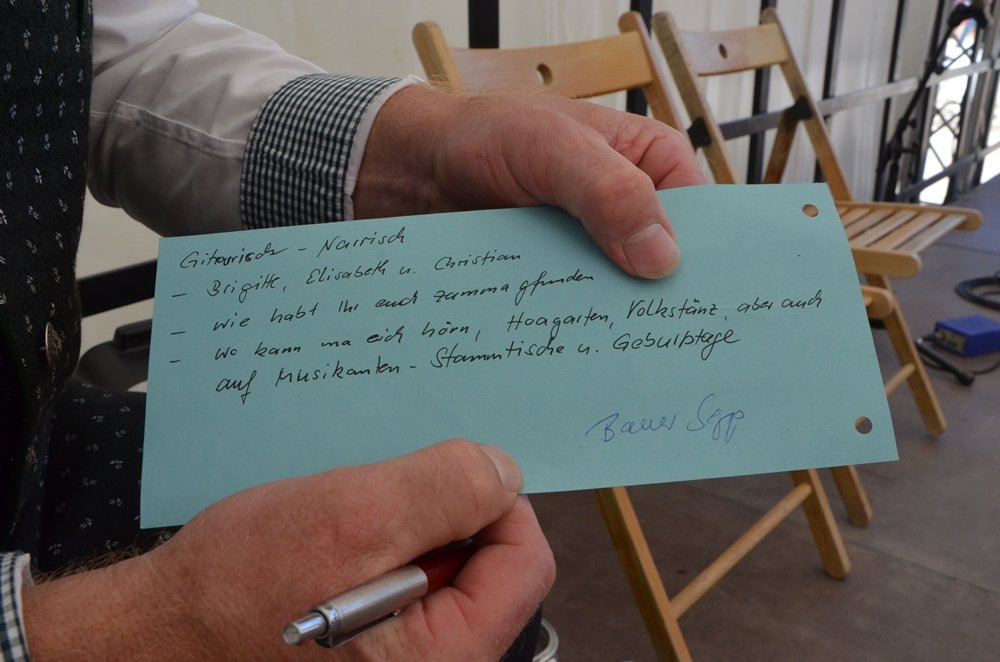 Gitarrisch - Narrisch
- Brigitte, Elisabeth u. Christian
- wie habt Ihr euch zamma gfunden
- wo kann ma eich hörn, Hoagarten, Volkstänz, aber auch
auf Musikanten - Stammtische u. Geburtstage
Bauer Sepp